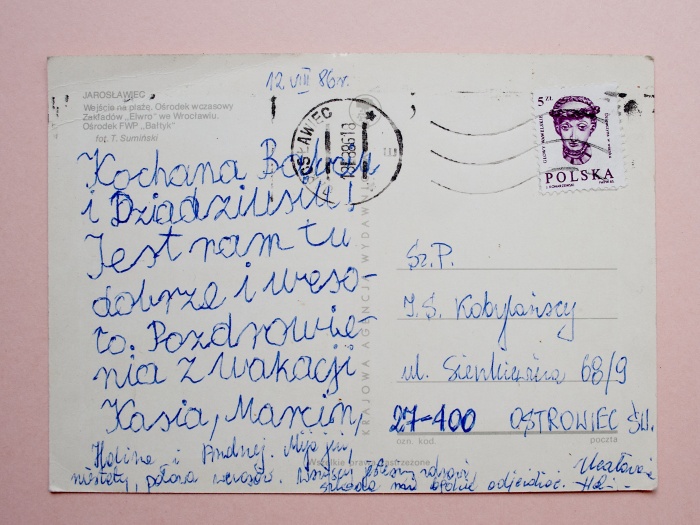 JAROSŁAWIEC
Wejście na plażę. Ośrodek wczasowy
Zakładów „Elwro" we Wrocławiu.
Ośrodek FWP „Bałtyk"
fot. T. Sumiński
12 VIII 86 r.
5 ZŁ
GŁOWY WAWELSKIE
POLSKA
KRAJOWA AGENCJA WYDAW
Kochana Babciu
i Dziadziusiu!
Jest nam tu
dobrze i weso-
ło. Pozdrowie,
nia z wakacji
Kasia, Marcin,
Halina i Andrzej. Mija już,
niestety, połowa wczasów. Wszyscy jesteśmy zdrowi
szkoda nam będzie odjeżdżać.
Sz.P.
J.S. Kobylańscy
ul. Sienkiewicza 68/9
27-400 OSTROWIEC ŚW.
ozn. kod. poczta
Wszelkie prawa zastrzeżone